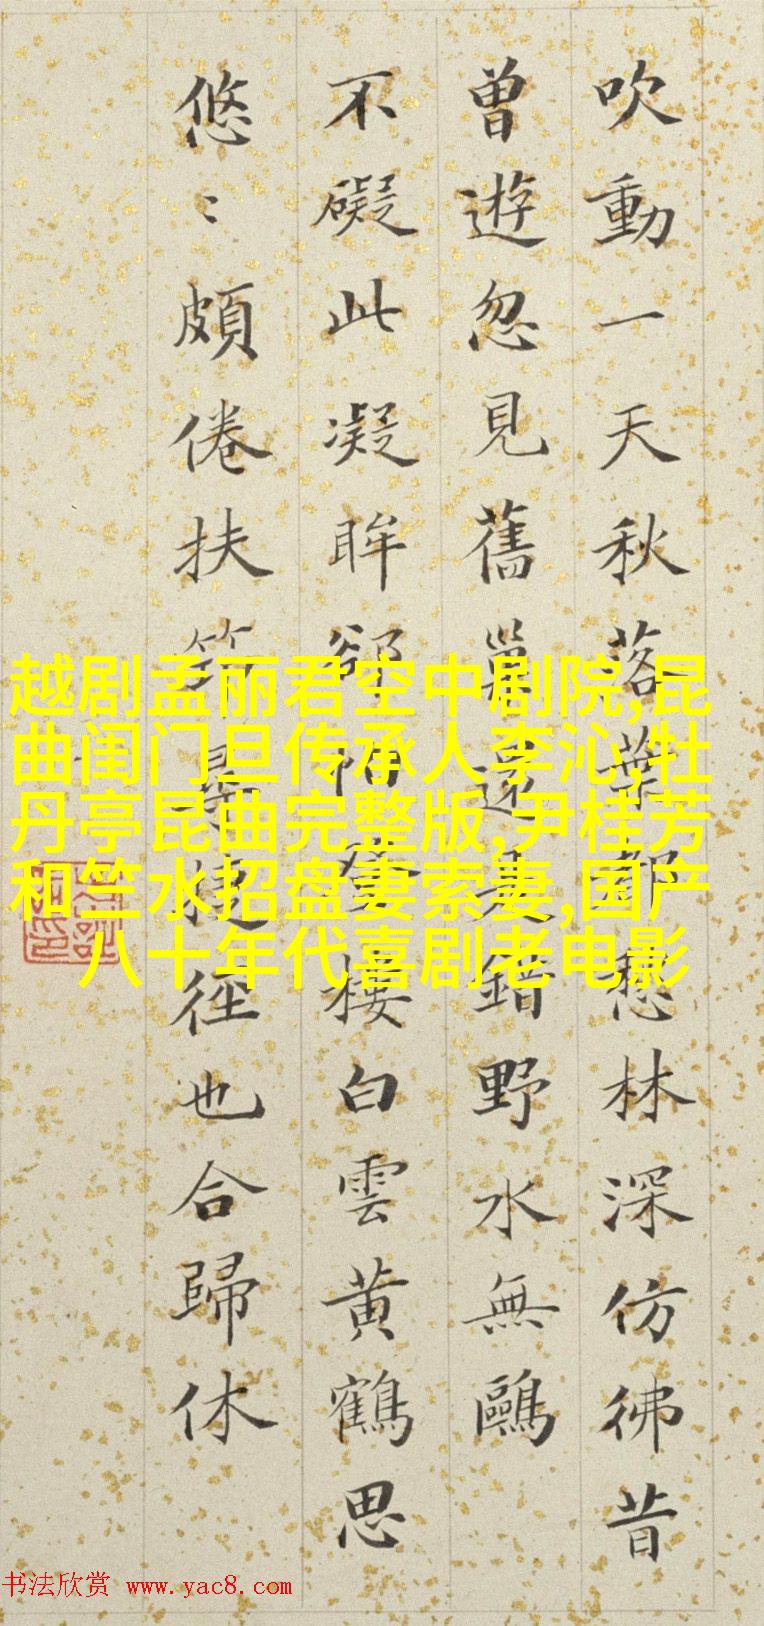 吹動一天秋落葉都愁林深仿彿昔
曾遊忽見舊巢還是錯野水無鷗
不礙此凝眸卻怕登樓白雲黃鶴思
悠〻頗倦扶筇是捷徑也合歸休
越剧孟丽君空中剧院,昆
曲闺门旦传承人李沁,牡
丹亭昆曲完整版,尹桂芳
和竺水招盘妻索妻,国产
八十年代喜剧老电影
书法欣赏 www.yac8.com